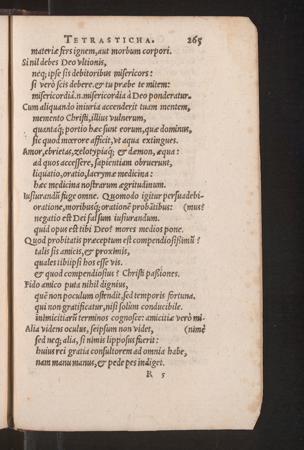 TETRASTICHA. 265
materiæ fers ignem, aut morbum corpori.
Si nil debes Deo vltionis,
neq; ipse sis debitoribus misericors:
si verò scis debere, & tu præbe te mitem:
misericordiā.n.misericordia à Deo ponderatur.
Cum aliquando iniuria accenderit tuam mentem,
memento Christi, illius vulnerum,
quantaq; portio hæc sunt eorum, quæ dominus,
sic quod mœrore afficit, vt aqua extingues.
Amor, ebrietas, zelotypiaq; & dæmon, æqua:
ad quos accessere, sapientiam obruerunt,
liquatio, oratio, lacrymæ medicina:
hæc medicina nostrarum ægritudinum.
Iusiurandū fuge omne. Quomodo igitur persuadebi-
oratione, moribusq; orationē probātibus: (mus?
negatio est Dei falsum iusiurandum.
quid opus est tibi Deo? mores medios pone.
Quod probitatis præceptum est compendiosissimū?
talis sis amicis, & proximis,
quales tibi ipsi hos esse vis.
& quod compendiosius? Christi passiones.
Fido amico puta nihil dignius,
quē non poculum ostendit, sed temporis fortuna.
qui non gratificatur, nisi solùm conducibile.
inimicitiarū terminos cognosce: amicitiæ verò mi-
Alia videns oculus, seipsum non videt, (nimè
sed neq; alia, si nimis lipposus fuerit:
huius rei gratia consultorem ad omnia habe,
nam manu manus, & pede pes indiget.
R 5